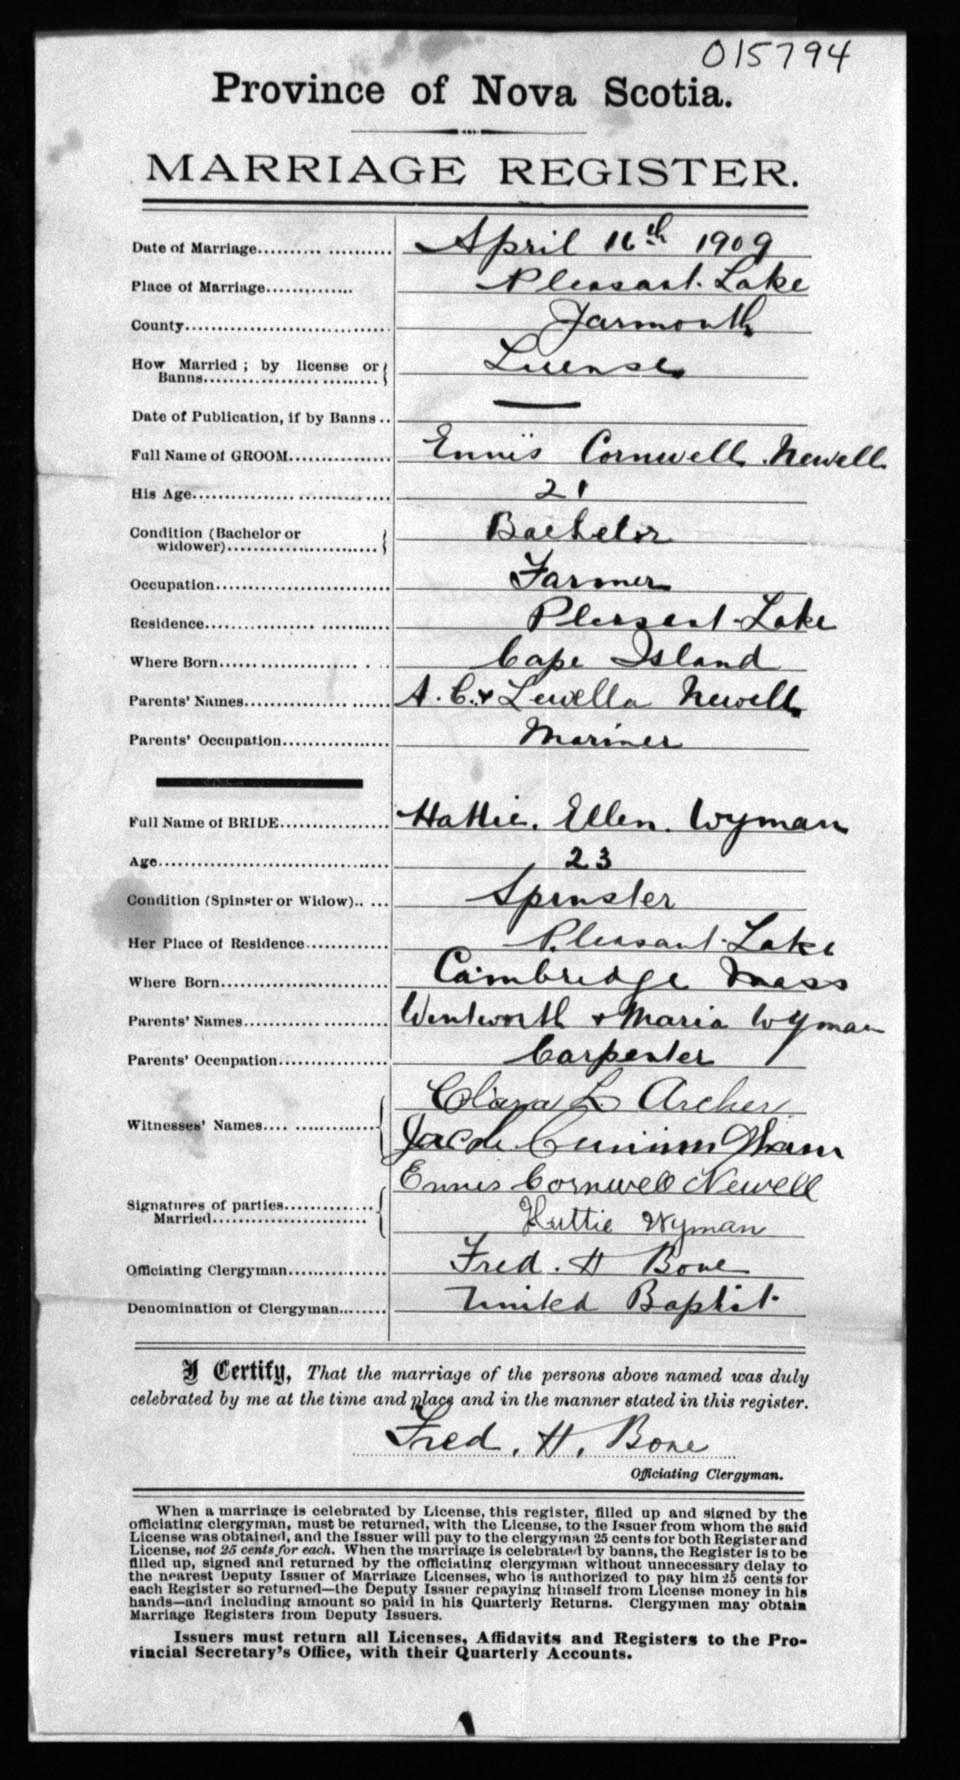 015794
Province of Nova Scotia.
MARRIAGE REGISTER.
Date of Marriage.......... .......... April 16th 1909
Place of Marriage............. Pleasant Lake
County.............................. Yarmouth
How Married ; by license or License
Banns.............................
Date of Publication, if by Banns .. —
Full Name of GROOM............... Ennis Cornwell Newell
His Age............................. 21
Condition (Bachelor or Bachelor
widower).........................
Occupation......................... Farmer
Residence........................... Pleasant Lake
Where Born......................... Cape Island
Parents' Names..................... A. C. & Lewella Newell
Parents' Occupation................ Mariner
Full Name of BRIDE................ Hattie Ellen Wyman
Age.................................. 23
Condition (Spinster or Widow).. ... Spinster
Her Place of Residence............ Pleasant Lake
Where Born......................... Cambridge Mass
Parents' Names..................... Wentworth & Maria Wyman
Parents' Occupation................ Carpenter
Clara L. Archer
Witnesses' Names.... ............
Jacob Cunningham
Ennis Cornwell Newell
Signatures of parties..............
Married....................... Hattie Wyman
Officiating Clergyman............... Fred. H Bone
Denomination of Clergyman........ United Baptist
I Certify, That the marriage of the persons above named was duly
celebrated by me at the time and place and in the manner stated in this register.
Fred. H. Bone
Officiating Clergyman.
When a marriage is celebrated by License, this register, filled up and signed by the
officiating clergyman, must be returned, with the License, to the Issuer from whom the said
License was obtained, and the Issuer will pay to the clergyman 25 cents for both Register and
License, not 25 cents for each. When the marriage is celebrated by banns, the Register is to be
filled up, signed and returned by the officiating clergyman without unnecessary delay to
the nearest Deputy Issuer of Marriage Licenses, who is authorized to pay him 25 cents for
each Register so returned—the Deputy Issuer repaying himself from License money in his
hands—and including amount so paid in his Quarterly Returns. Clergymen may obtain
Marriage Registers from Deputy Issuers.
Issuers must return all Licenses, Affidavits and Registers to the Pro-
vincial Secretary's Office, with their Quarterly Accounts.